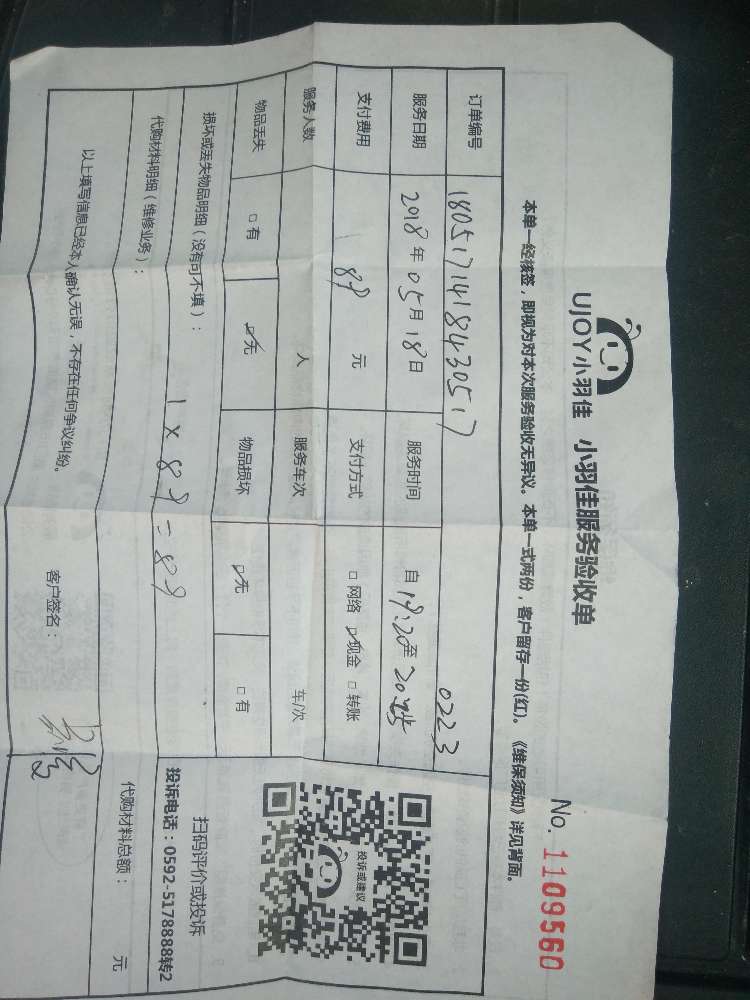 UJOY小羽佳 小羽佳服务验收单
No. 1109560
本单一经核签，即视为对本次服务验收无异议。本单一式两份，客户留存一份(红)。《维保须知》详见背面。
订单编号 180517141843051 7 0223
服务日期 2018年05月18日 服务时间 自19:20至20:45
支付费用 89元 支付方式 □网络 ☑现金 □转账
服务人数 人 服务车次 车/次
物品丢失 □有 ☑无 物品损坏 ☑无 □有
损坏或丢失物品明细（没有可不填）：
1×89=89
投诉或建议
扫码评价或投诉
投诉电话：0592-5178888转2
代购材料明细（维修业务）：
代购材料总额： 元
以上填写信息已经本人确认无误，不存在任何争议纠纷。
客户签名：